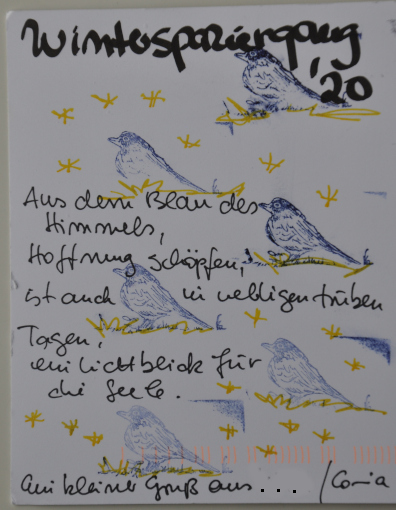 Winterspaziergang
'20
Aus dem Blau des
Himmels,
Hoffnung schöpfen,
ist auch in nebligen trüben
Tagen,
ein Lichtblick für
die Seele.
Ein kleiner Gruß aus ... /Conia